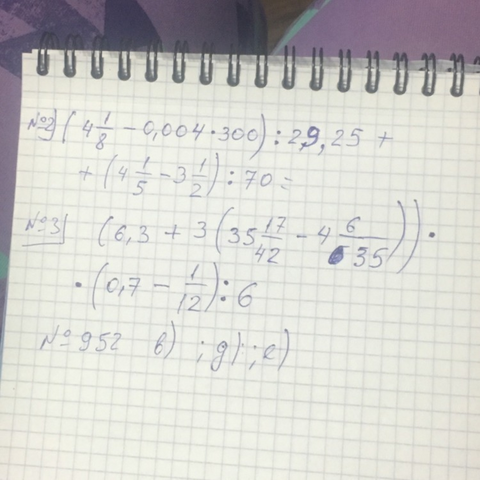 №2) (4 1/8 - 0,004 · 300) : 29,25 +
+ (4 1/5 - 3 1/2) : 70 =
№3) (6,3 + 3 (35 17/42 - 4 6/35)) ·
· (0,7 - 1/12) : 6
№952 в) ; д) ; е)